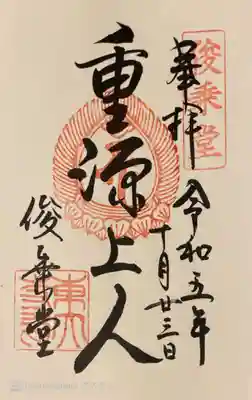 俊乗堂
奉拝
令和五年
十月廿三日
重源上人
俊乗堂